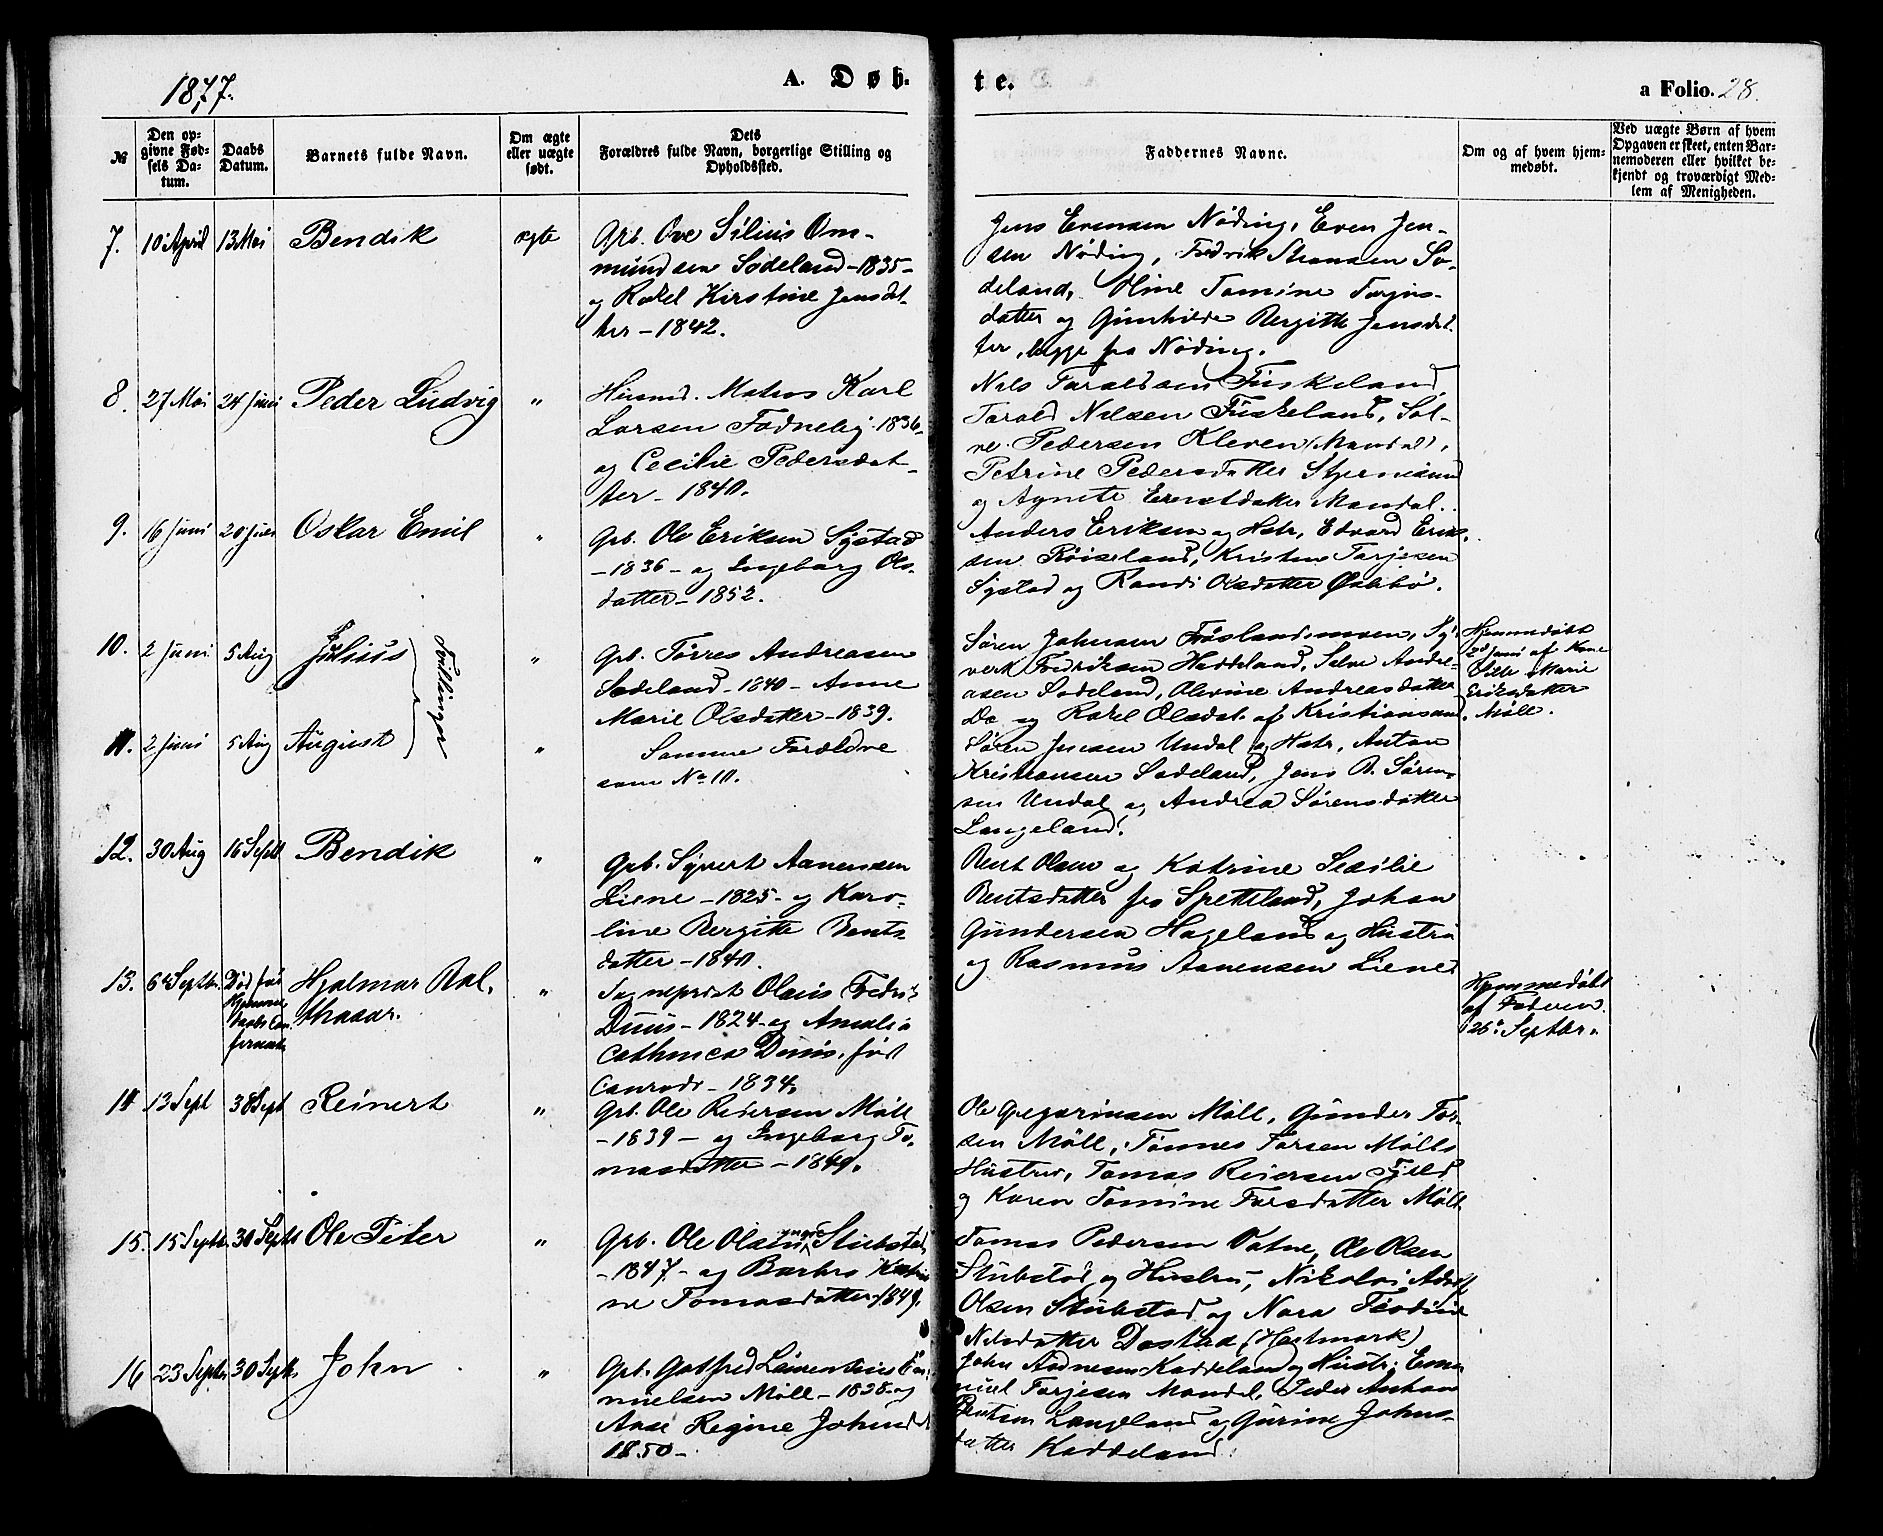 1877.
A. Døb-
te.
a Folio. 28.
№
Den op-
givne Fød-
sels Da-
tum.
Daabs
Datum.
Barnets fulde Navn.
Om ægte
eller uægte
født.
Dets
Forældres fulde Navn, borgerlige Stilling og
Opholdssted.
Faddernes Navne.
Om og af hvem hjem-
medøbt.
Ved uægte Børn af hvem
Opgaven er skeet, enten Bar-
nemoderen eller hvilket be-
kjendt og troværdigt Med-
lem af Menigheden.
7. 10 April 13 Mai Bendik ægte
Grb. Ove Silius Om-
mundsen Sødeland - 1835 -
og Rakel Kirstine Jensdat-
ter - 1842.
Jens Evensen Nøding, Even Jen-
sen Nøding, Fredrik
deland, Oline Tomine
datter og Gunhilde Bergitte Jensdat-
ter, begge fra Nøding.
8. 27 Mai 24 Juni Peder Ludvig "
Husmd. Matros Karl
Larsen 1836
og Cecilie Pedersdat-
ter - 1840.
Nils Taraldsen Fuskeland,
Tarald Nilsen Fuskeland, Sal-
ve Pedersen Kleven (Mandal),
Petrine Pedersdatter Stjernsund
og Agnete Erentdatter Mandal.
9. 16 Juni 20 Oskar Emil "
Grb. Ole Eriksen Systad
- 1836 - og Ingeborg Ols-
datter - 1852.
Anders Eriksen og Hstr, Edvard Erik-
sen Røiseland, Kristen Tarjesen
Systad og Randi Olsdatter
10. 2 Juni 5 Aug Julius "
Tvillinger
Grb. Tørres Andreasen
Sødeland - 1840 - Anne
Marie Olsdatter - 1839.
Søren Johnsen Frøslandsmoen, Sy-
vert Fredriksen Haddeland, Salve Andre-
asen Sødeland, Olevine Andreasdatter
Do og Rakel Olsdat. af Kristiansand.
Hjemmedøbt
2d Juni af Kone
Sille Marie
Eriksdatter
Møll.
11. 2 Juni 5 Aug August "
Samme Forældre
som No 10.
Søren Jensen Undal og Hstr, Anton
Kristiansen Sødeland, Jens B. Søren-
sen Undal og Andrea Sørensdatter
Langeland.
12. 30 Aug 16 Sept Bendik "
Grb. Syvert Aanensen
Liene - 1825 - og Karo-
line Bergitte Bents-
datter - 1840.
Bent Olsen og Katrine
Bentsdatter fra Spetteland, Johan
Gundersen Hageland og Hustru
og Rasmus Aanensen Liene
13. 6te Septbr. Død før
Hjemme-
daabs Con-
firmat.
Hjalmar Bal-
thasar. "
Sogneprest Olaus Fredr.
Duus - 1824 - og Amalia
Cathinca Duus, født
Conradi - 1834.
Hjemmedøbt
af Faderen
26de Septbr.
14 13 Sept 38 Sept Reinert "
Grb. Ole Reiersen Møll
- 1839 - og Ingeborg To-
masdatter - 1849.
Ole Gregoriusen Møll, Gunder Tor-
sen Møll, Tønnes Torsen Mølls
Hustru, Tomas Reiersen Fjeld
og Karen Tomine Torsdatter Møll
15. 15 Septbr. 30 Septbr Ole Peter "
Grb. Ole Olsen yngre Stubstad
- 1847 - og Barbro Katri-
ne Tomasdatter - 1849.
Tomas Pedersen Vatne, Ole Olsen
Stubstad og Hustru, Nikolai Adolf
Olsen Stubstad og Nora Teodine
Nilsdatter Dostad (Hartmark)
16 23 Septbr 30 Septbr John "
Grb. Gotfred Laurentius
nuelsen Møll - 1838 - og
Aase Regine Johnsd.
1850 -
John Aadnesen Haddeland og Hustr. Ema-
nuel Tarjesen Mandal, Peder Anton
Bentsen Langeland og Gurine Johns-
datter Haddeland.